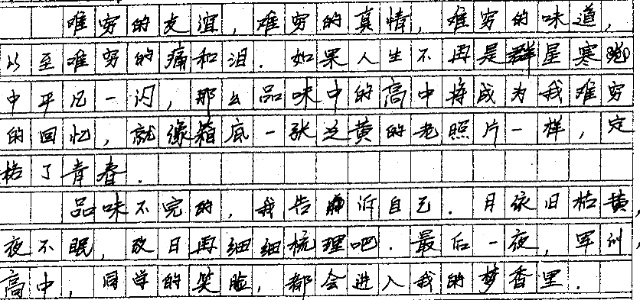 难穷的友谊，难穷的真情，难穷的味道，
以至难穷的痛和泪．如果人生不再是群星寒
中平凡一闪，那么品味中的高中将成为我难穷
的回忆，就像箱底一张泛黄的老照片一样，定
格了青春．
品味不完的，我告诉自己．月依旧枯黄，
夜不眠，改日再细细梳理吧．最后一夜，军训，
高中，同学的笑脸，都会进入我的梦香里．